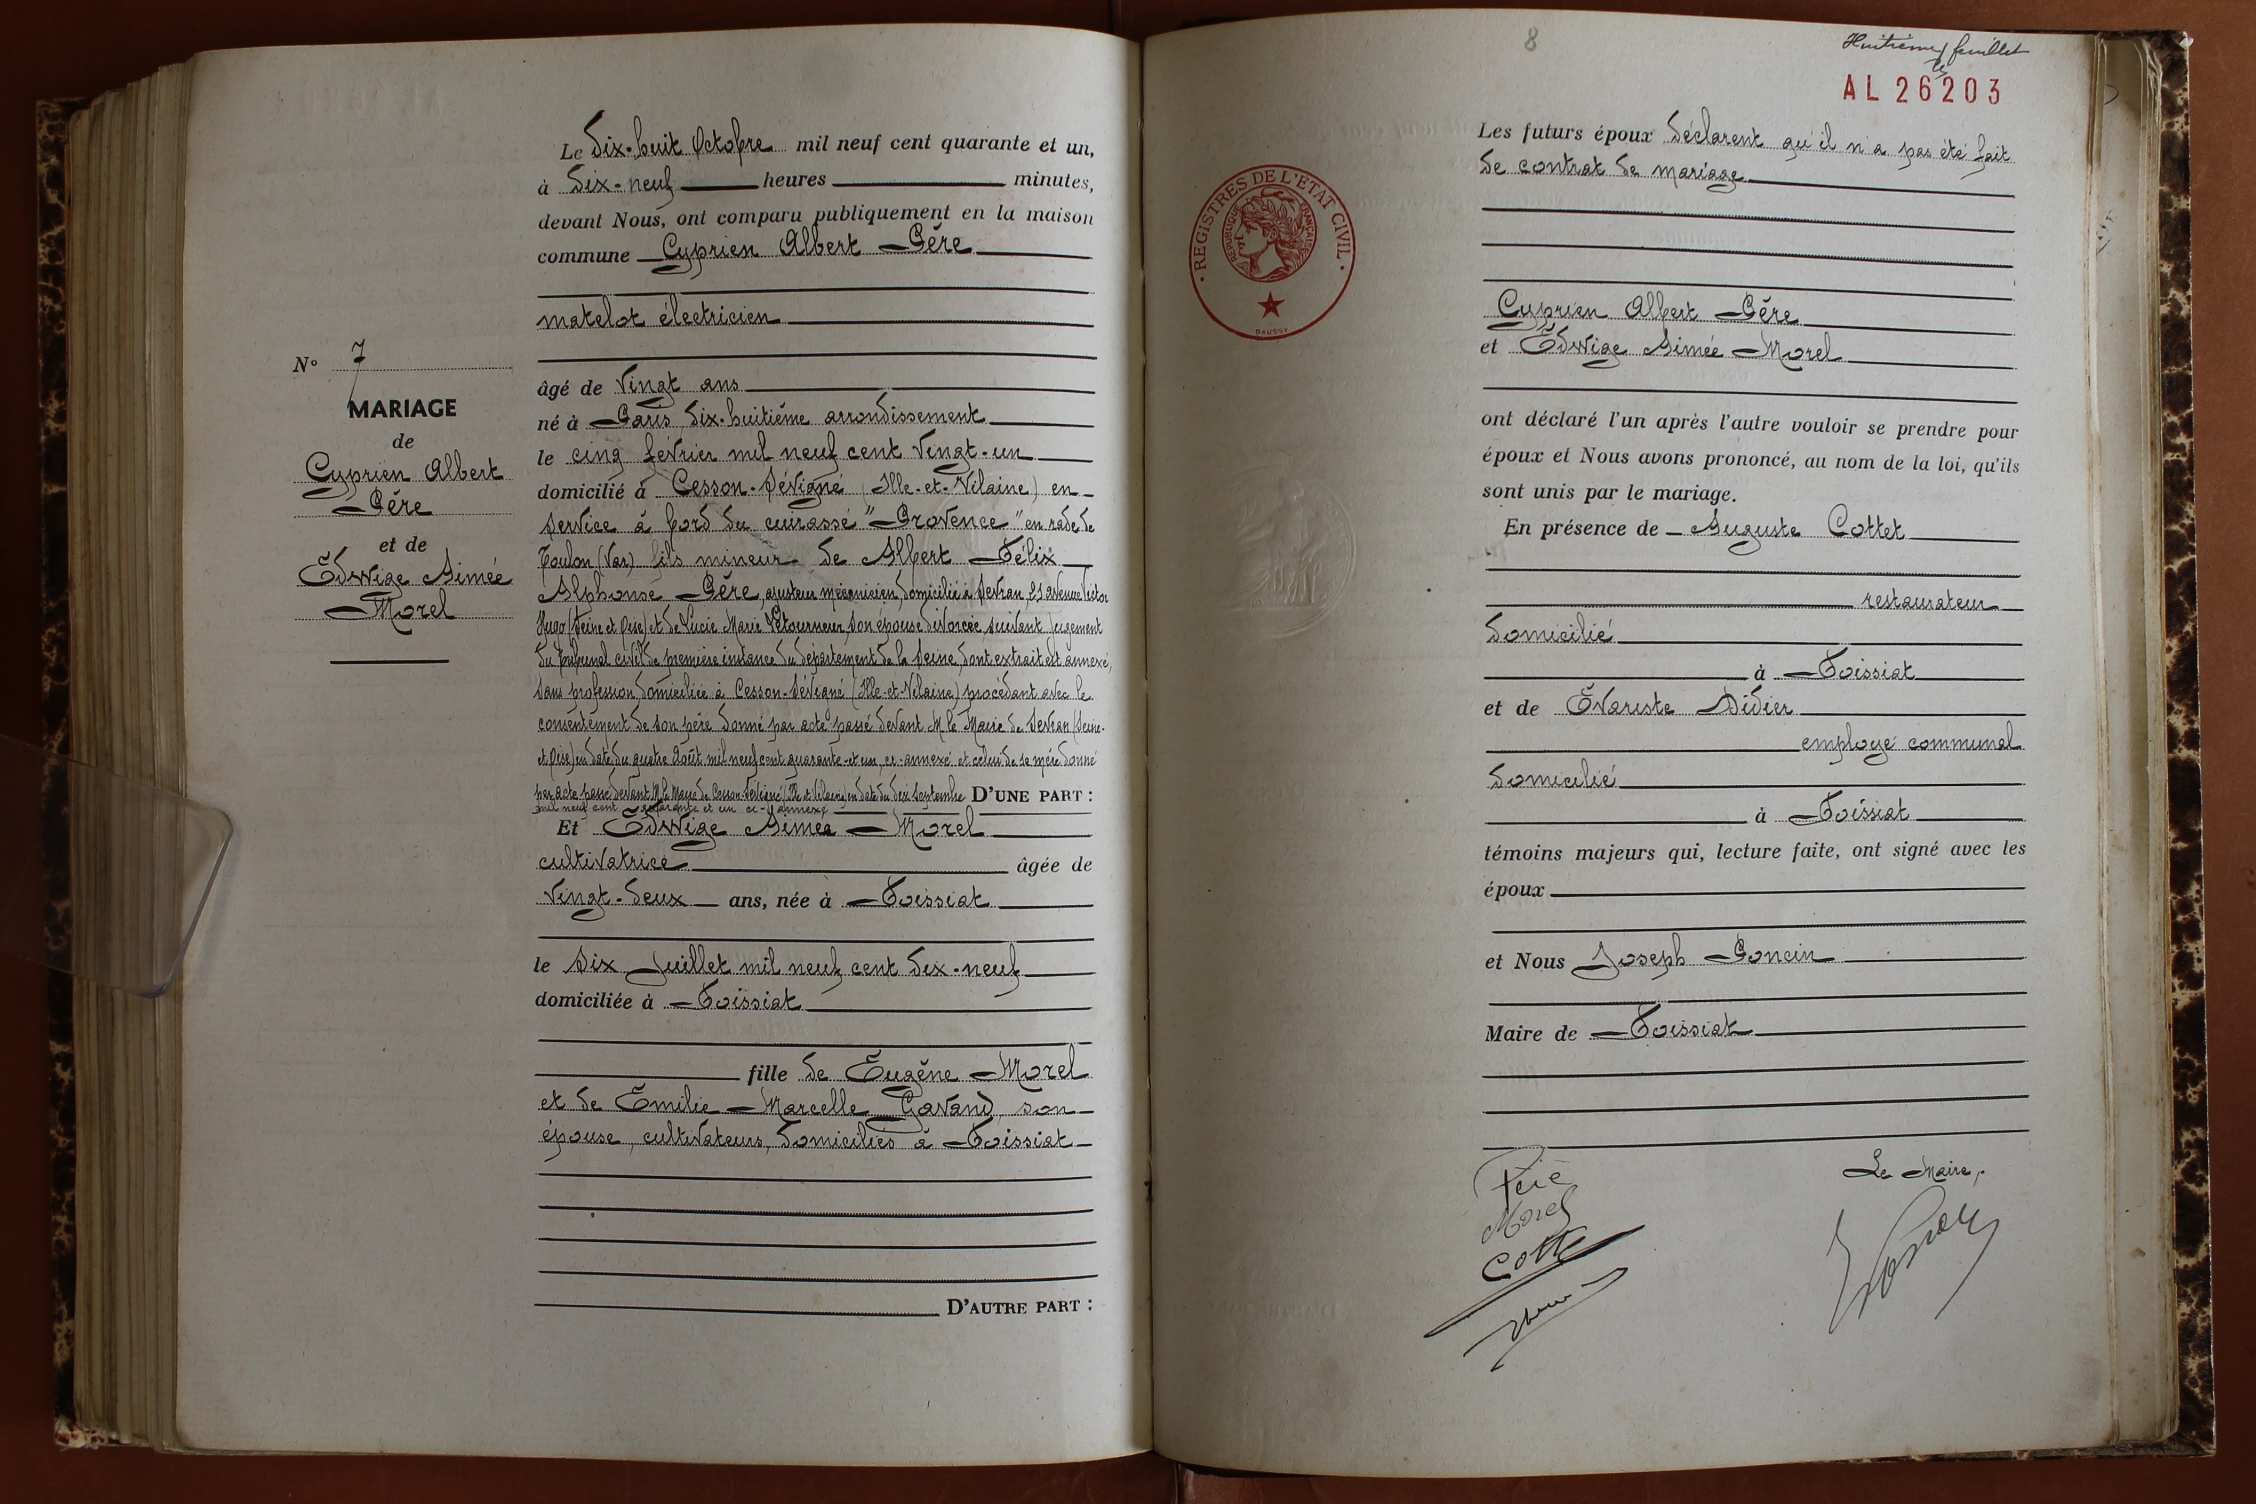 Le Dix-huit Octobre mil neuf cent quarante et un,
à Dix-neuf heures minutes,
devant Nous, ont comparu publiquement en la maison
commune Cyprien Albert Père
matelot électricien
âgé de Vingt ans
né à Paris Dix-huitième arrondissement
le cinq février mil neuf cent Vingt-un
domicilié à Cesson-Sévigné (Ille-et-Vilaine) en
service à bord du cuirassé "Provence" en rade de
Toulon (Var) fils mineur de Albert Félix
Alphonse Père, ajusteur mécanicien, domicilié à Sevran, avenue Victor
Hugo (Seine et Oise) et de Lucie Marie Letourneur, son épouse divorcée suivant jugement
du tribunal civil de première instance du département de la Seine, dont extrait est annexé,
sans profession, domiciliée à Cesson-Sévigné (Ille-et-Vilaine) procédant avec le
consentement de son père donné par acte passé devant M. le Maire de Sevran (Seine-
et Oise) en date du quatre Août mil neuf cent quarante-et-un, ci-annexé et celui de sa mère donné
par acte passé devant M. le Maire de Cesson-Sévigné (Ille et Vilaine) en date du Septembre D'UNE PART :
mil neuf cent quarante et un ci-annexé
Et Edwige Aimée Morel
cultivatrice âgée de
Vingt-deux ans, née à Toissiat
le Six Juillet mil neuf cent Dix-neuf
domiciliée à Toissiat
fille de Eugène Morel
et de Emilie Marcelle Gavand, son
épouse, cultivateurs, domiciliés à Toissiat
D'AUTRE PART :
N° 7
MARIAGE
de
Cyprien Albert
Père
et de
Edwige Aimée
Morel
8
Huitième feuillet
AL 26203
REGISTRES DE L'ETAT CIVIL
REPUBLIQUE FRANÇAISE
DAUSSY
Les futurs époux déclarent qu'il n'a pas été fait
de contrat de mariage
Cyprien Albert Père
et Edwige Aimée Morel
ont déclaré l'un après l'autre vouloir se prendre pour
époux et Nous avons prononcé, au nom de la loi, qu'ils
sont unis par le mariage.
En présence de Auguste Cottet
restaurateur
domicilié
à Toissiat
et de Evariste Didier
employé communal
domicilié
à Toissiat
témoins majeurs qui, lecture faite, ont signé avec les
époux
et Nous Joseph Poncin
Maire de Toissiat
Le Maire,
Père
Morel